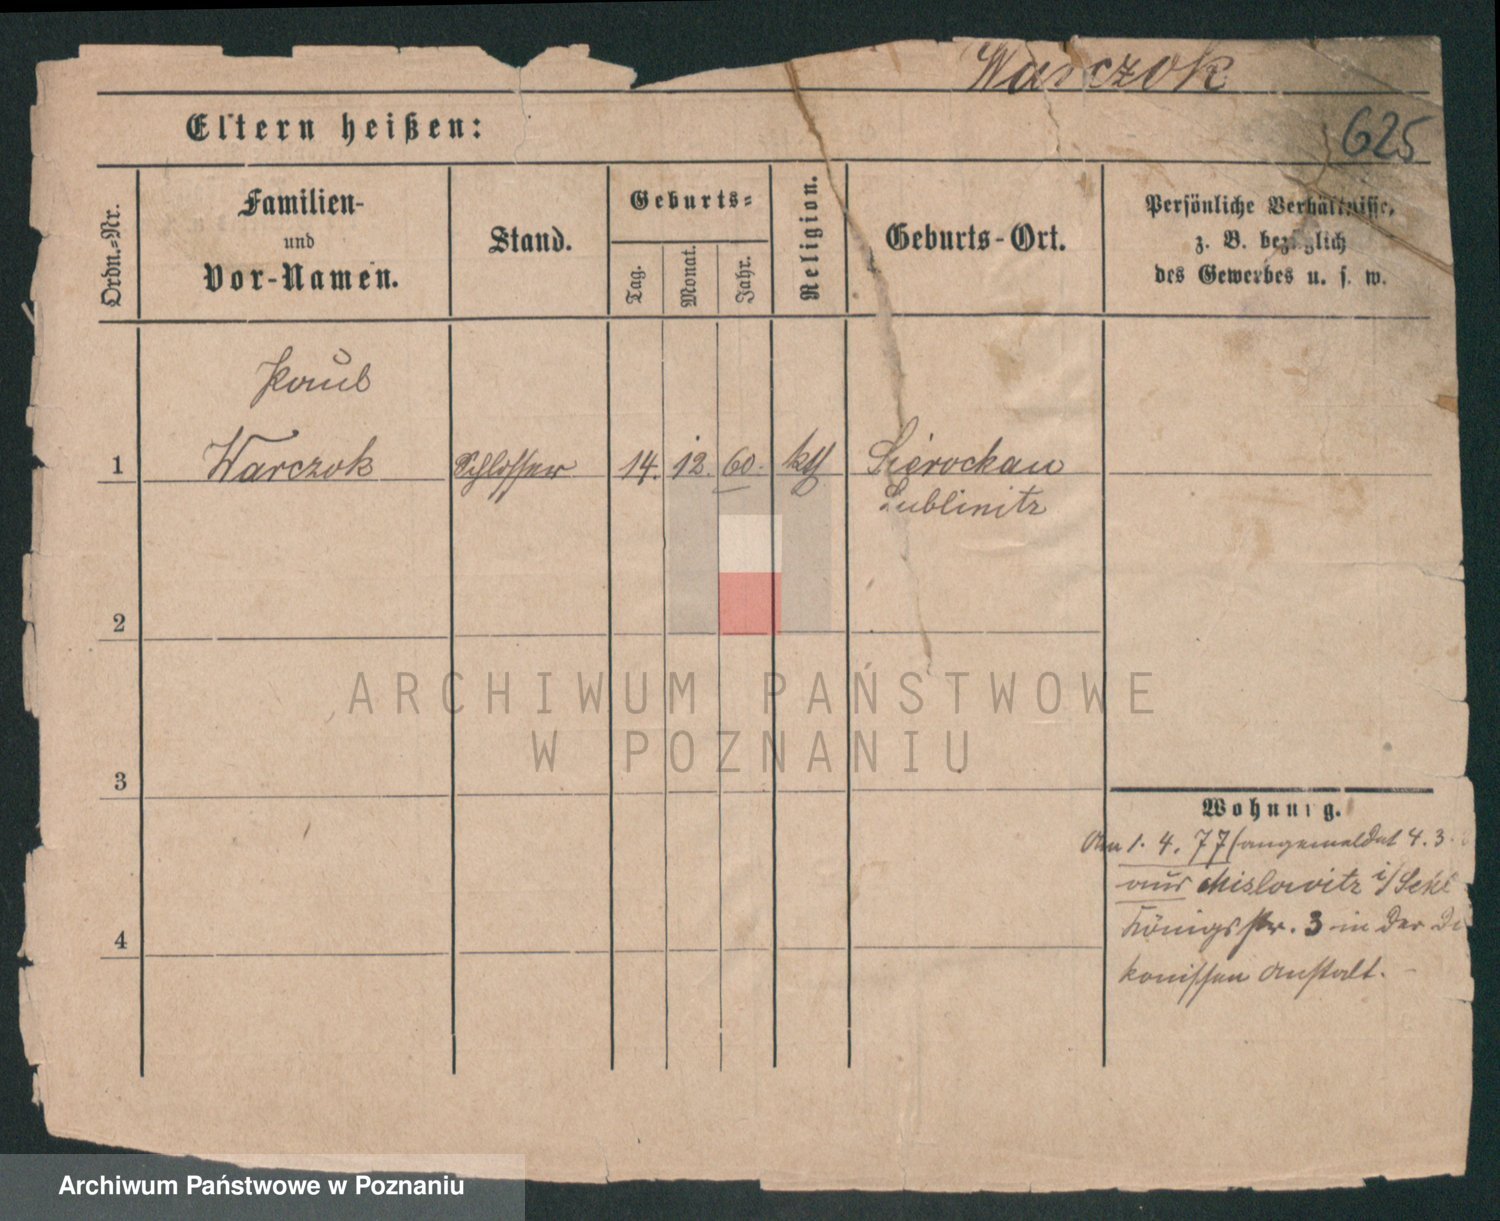 Warczok
625
Eltern heißen:
Ordn.-Nr.
Familien-
und
Vor-Namen.
Stand.
Geburts-
Tag.
Monat.
Jahr.
Religion.
Geburts-Ort.
Persönliche Verhältnisse,
z. B. bezüglich
des Gewerbes u. s. w.
Paul
1 Warczok Schlosser 14. 12. 60. kth Sierockau
Lublinitz
2
3
4
Wohnung.
Am 1. 4. 77 (angemeldet 4. 3.
aus Mislowitz i/Schl
Königsstr. 3 in der Di
konissen Anstalt.
ARCHIWUM PAŃSTWOWE
W POZNANIU
Archiwum Państwowe w Poznaniu